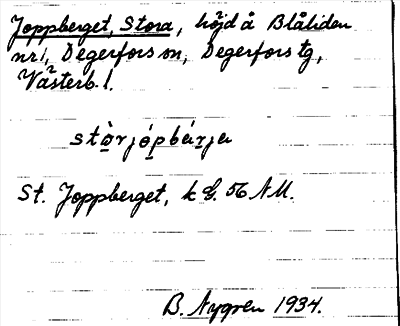 Joppberget, Stora, höjd å Blåliden
nr 1, Degerfors sn, Degerfors tg,
Västerb. l.
St. Joppberget, k G. 56 NU.
B. Nygren 1934.